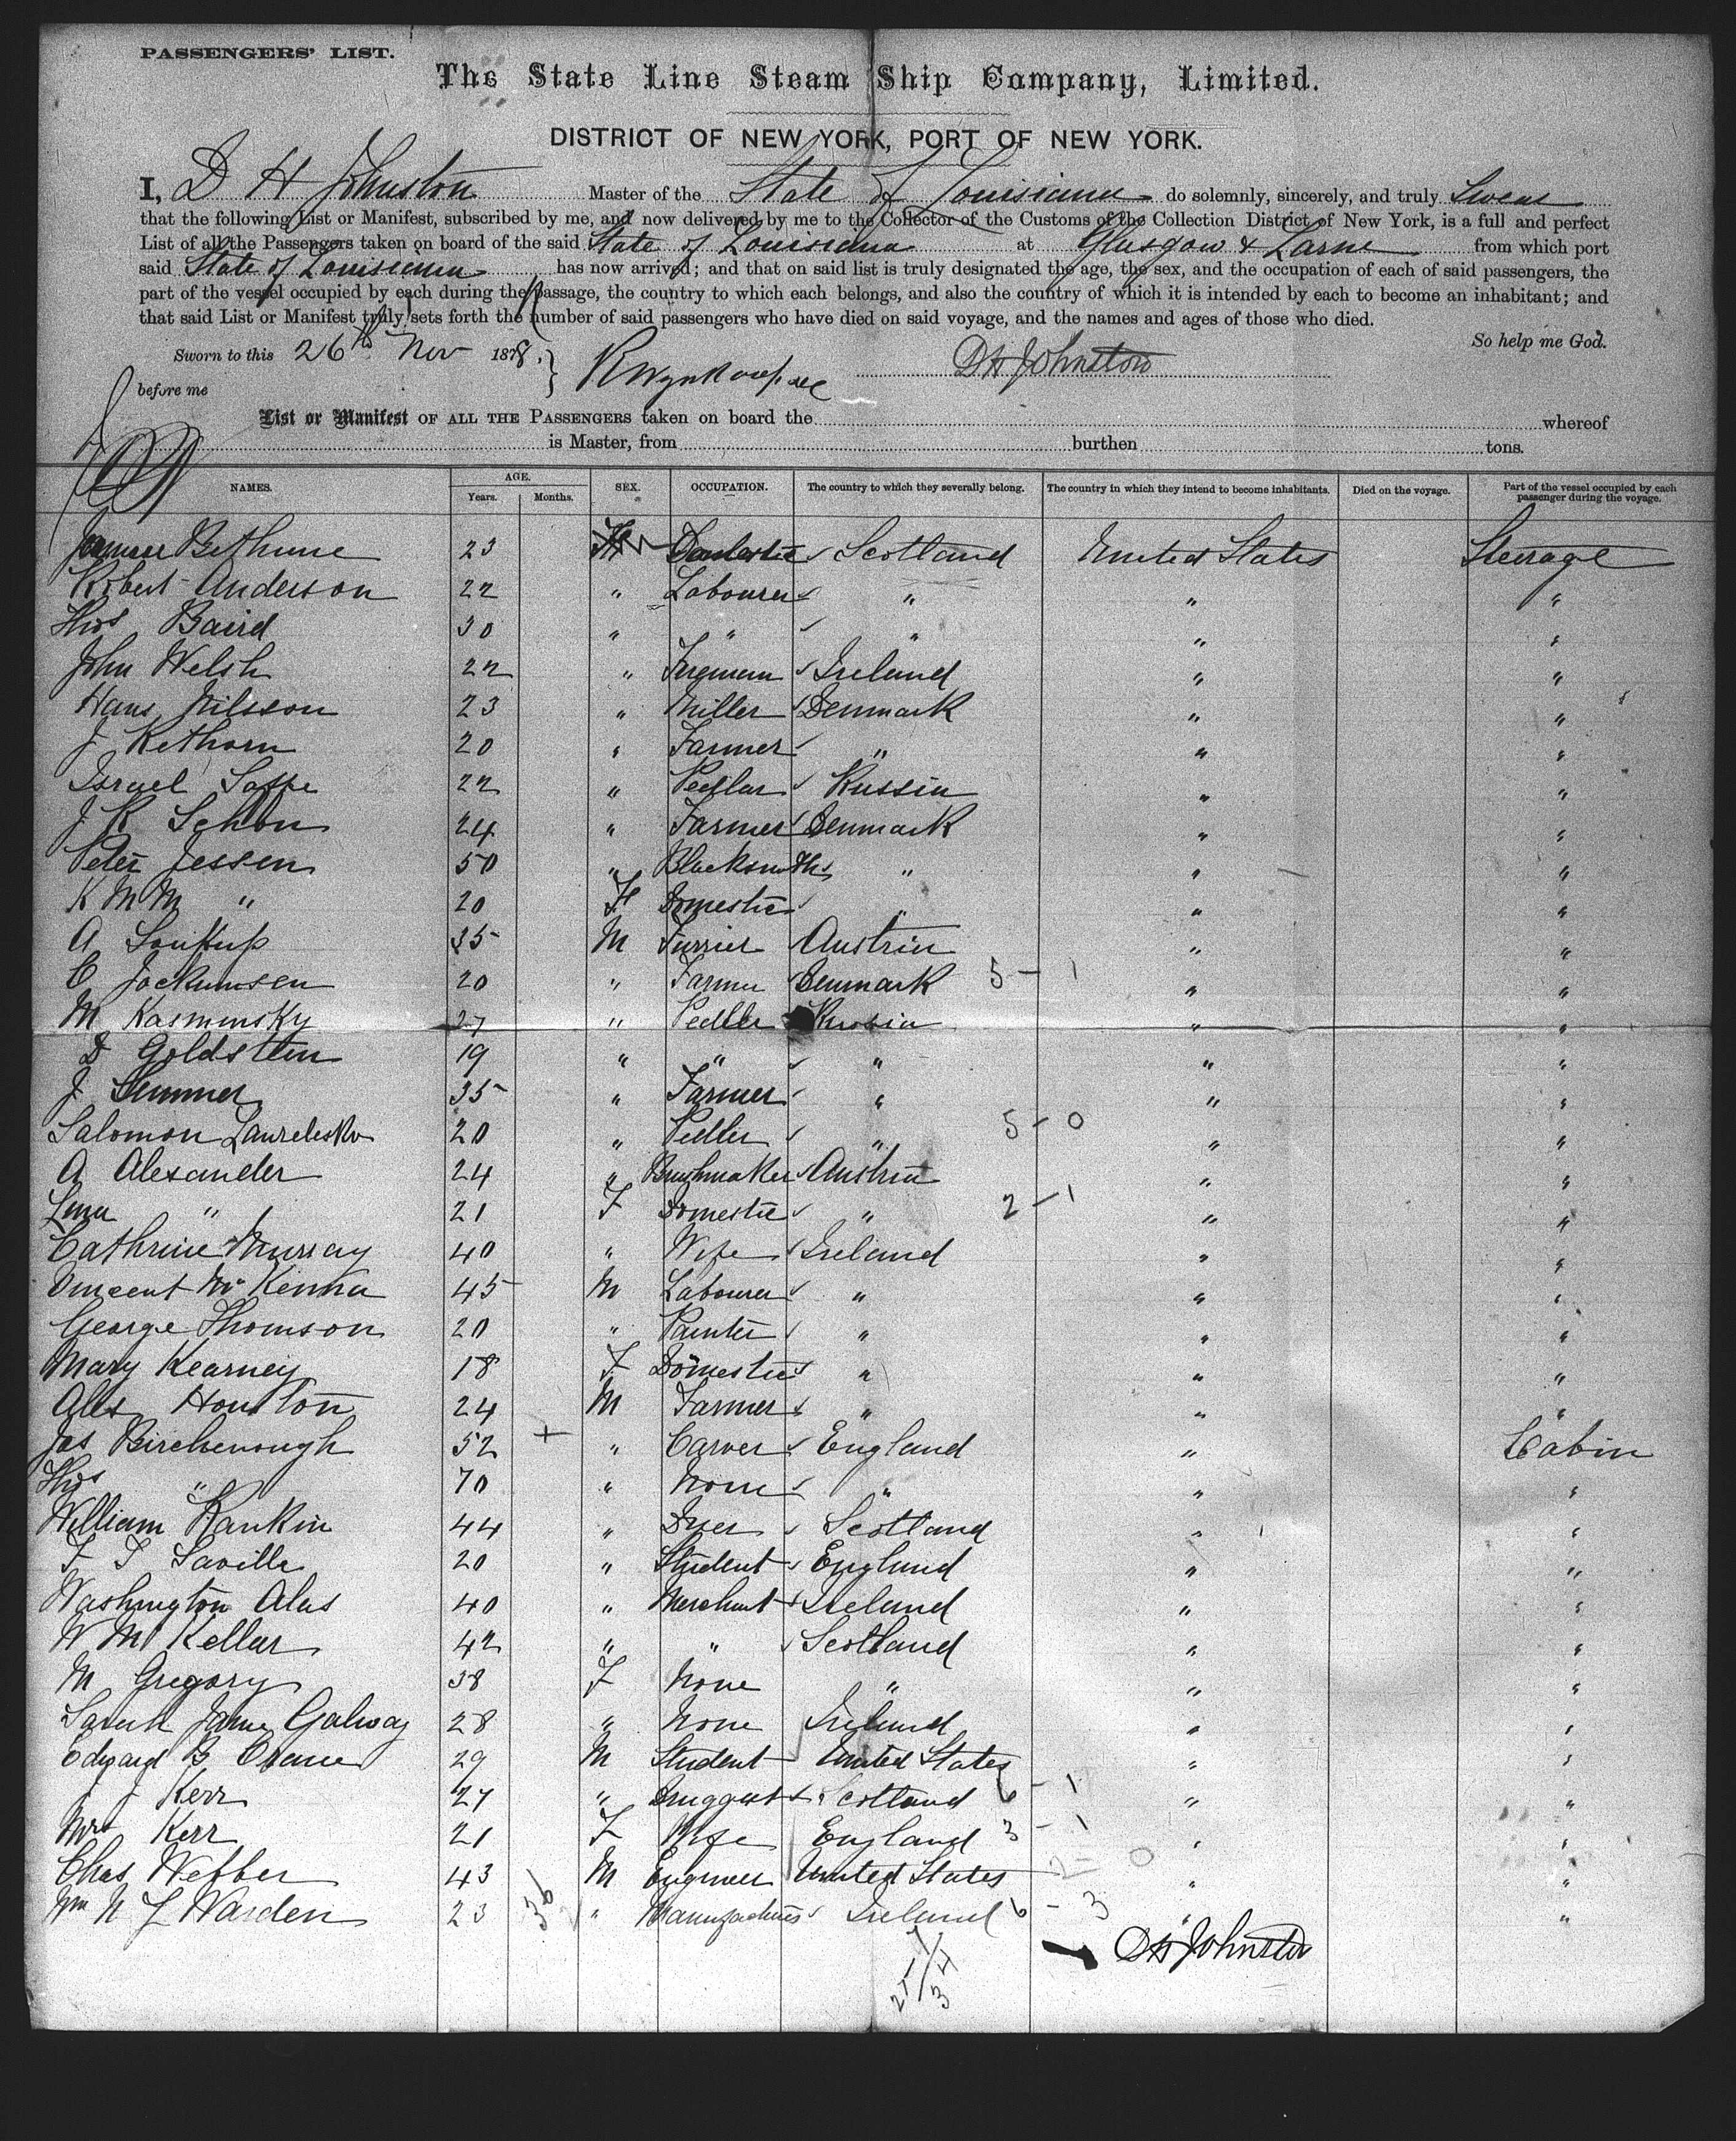 PASSENGERS' LIST.
The State Line Steam Ship Company, Limited.
DISTRICT OF NEW YORK, PORT OF NEW YORK.
I, D H Johnston Master of the State of Louisiana do solemnly, sincerely, and truly Swear
that the following List or Manifest, subscribed by me, and now delivered by me to the Collector of the Customs of the Collection District of New York, is a full and perfect
List of all the Passengers taken on board of the said State of Louisiana at Glasgow & Larne from which port
said State of Louisiana has now arrived; and that on said list is truly designated the age, the sex, and the occupation of each of said passengers, the
part of the vessel occupied by each during the passage, the country to which each belongs, and also the country of which it is intended by each to become an inhabitant; and
that said List or Manifest truly sets forth the number of said passengers who have died on said voyage, and the names and ages of those who died.
So help me God.
Sworn to this 26th Nov 1878.
DH Johnston
before me
List or Manifest OF ALL THE PASSENGERS taken on board the whereof
is Master, from burthen tons.
NAMES. AGE. Years. Months. SEX. OCCUPATION. The country to which they severally belong. The country in which they intend to become inhabitants. Died on the voyage. Part of the vessel occupied by each passenger during the voyage.
Bethune 23 Domestic Scotland United States Steerage
Robert Anderson 22 " Labourer " " "
Thos Baird 30 " " " " "
John Welsh 22 " Ireland " "
Hans Nilsson 23 " Miller Denmark " "
J Kethorn 20 " Farmer " " "
Israel 22 " Pedlar Russia " "
J K Schon 24 " Farmer Denmark " "
Peter Jessen 50 " Blacksmith " " "
K M M " 20 F Domestic " " "
A Soukup 35 M Furrier Austria " "
C Jockumsen 20 " Farmer Denmark 5 - 1 " "
M Kasminsky 27 " Pedler Russia " "
D Goldstein 19 " " " " "
J 35 " Farmer " " "
Salomon 20 " Pedler " 5 - 0 " "
A Alexander 24 " Brushmaker Austria " "
Lena " 21 F Domestic " 2 - 1 " "
Cathrine Murray 40 " Wife Ireland " "
Vincent McKenna 45 M Labourer " " "
George Thomson 20 " Painter " " "
Mary Kearney 18 F Domestic " " "
Alex Houston 24 M Farmer " " "
Jas Birchenough 52 + " Carver England " Cabin
Thos " 70 " None " " "
William Rankin 44 " Dyer Scotland " "
F T Saville 20 " Student England " "
Washington Alas 40 " Merchant Ireland " "
W McKellar 42 " " Scotland " "
M Gregory 38 F None " " "
Sarah Jane Galway 28 " None Ireland " "
Edward B Crane 29 M Student United States " "
J J Kerr 27 " Druggist Scotland 6 - 1 " "
Mrs Kerr 21 F Wife England 3 - 1 " "
Chas Webber 43 M Engineer United States 2 = 0 " "
Wm N L Warden 23 36 " Manufacturer Ireland 6 - 3 " "
DH Johnston